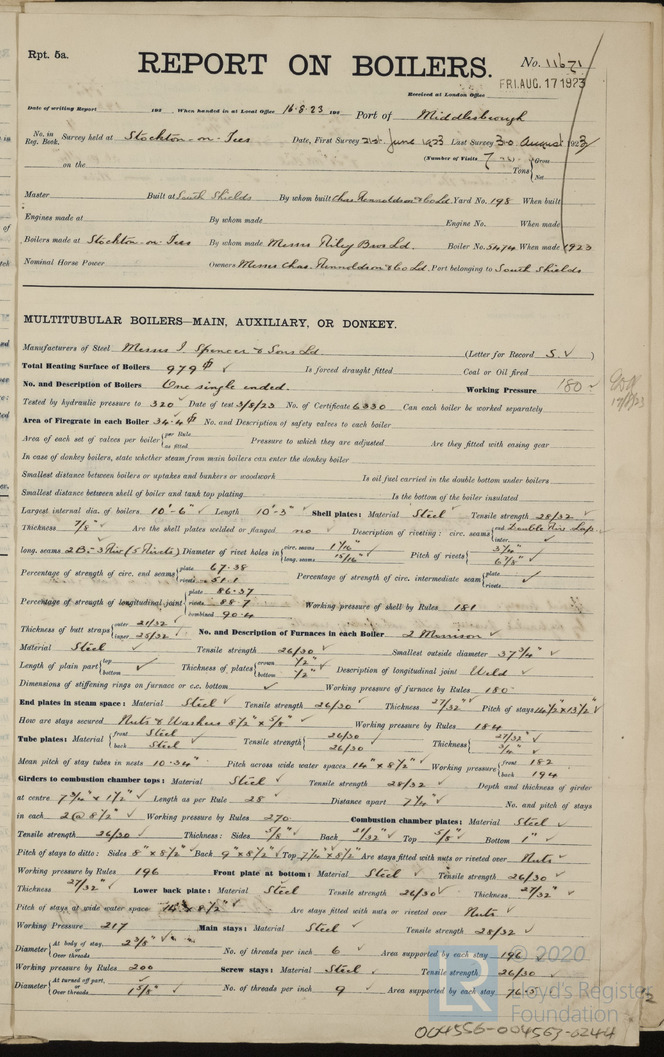 Rpt. 5a.
REPORT ON BOILERS.
No. 11671
Received at London Office FRI. AUG. 17 1923
Date of writing Report 192 When handed in at Local Office 16.8.23 192 Port of Middlesbrough
No. in Reg. Book. Survey held at Stockton-on-Tees Date, First Survey 21st June 1923 Last Survey 30 August 1923
(Number of Visits 7) Gross Net Tons
on the
Master Built at South Shields By whom built Chas. Rennoldson & Co Ld. Yard No. 198 When built
Engines made at By whom made Engine No. When made
Boilers made at Stockton-on-Tees By whom made Messrs Riley Bros Ld. Boiler No. 5474 When made 1923
Nominal Horse Power Owners Messrs Chas. Rennoldson & Co Ld. Port belonging to South Shields
MULTITUBULAR BOILERS—MAIN, AUXILIARY, OR DONKEY.
Manufacturers of Steel Messrs J. Spencer & Sons Ld (Letter for Record S ✓)
Total Heating Surface of Boilers 979 ✓ Is forced draught fitted Coal or Oil fired
No. and Description of Boilers One single ended. Working Pressure 180
Tested by hydraulic pressure to 320 Date of test 3/8/23 No. of Certificate 6330 Can each boiler be worked separately
Area of Firegrate in each Boiler 34.4 No. and Description of safety valves to each boiler
Area of each set of valves per boiler {per Rule as fitted Pressure to which they are adjusted Are they fitted with easing gear
In case of donkey boilers, state whether steam from main boilers can enter the donkey boiler
Smallest distance between boilers or uptakes and bunkers or woodwork Is oil fuel carried in the double bottom under boilers
Smallest distance between shell of boiler and tank top plating Is the bottom of the boiler insulated
Largest internal dia. of boilers 10'-6" ✓ Length 10'-3" ✓ Shell plates: Material Steel ✓ Tensile strength 28/32 ✓
Thickness 7/8" ✓ Are the shell plates welded or flanged no ✓ Description of riveting: circ. seams {end Double Riv Lap inter. ✓
long. seams 2 B.S. 3 Riv (5 Rivets) Diameter of rivet holes in {circ. seams 1 1/16" ✓ long. seams 15/16" ✓ Pitch of rivets {3 1/4" ✓ 6 7/8" ✓
Percentage of strength of circ. end seams {plate 67.38 rivets 51.1 Percentage of strength of circ. intermediate seam {plate rivets ✓
Percentage of strength of longitudinal joint {plate 86.37 rivets 88.7 combined 90.4 Working pressure of shell by Rules 181
Thickness of butt straps {outer 21/32 ✓ inner 25/32 ✓ No. and Description of Furnaces in each Boiler 2 Morrison ✓
Material Steel ✓ Tensile strength 26/30 ✓ Smallest outside diameter 37 3/4" ✓
Length of plain part {top bottom ✓ Thickness of plates {crown 1/2" ✓ bottom 1/2" ✓ Description of longitudinal joint Weld ✓
Dimensions of stiffening rings on furnace or c.c. bottom ✓ Working pressure of furnace by Rules 180
End plates in steam space: Material Steel ✓ Tensile strength 26/30 ✓ Thickness 27/32" ✓ Pitch of stays 14 1/2 x 13 1/2" ✓
How are stays secured Nuts & Washers 8 1/2" x 5/8" ✓ Working pressure by Rules 184
Tube plates: Material {front Steel back Steel Tensile strength {26/30 26/30 Thickness {27/32" ✓ 3/4" ✓
Mean pitch of stay tubes in nests 10.34" ✓ Pitch across wide water spaces 14" x 8 1/2" ✓ Working pressure {front 182 back 194
Girders to combustion chamber tops: Material Steel ✓ Tensile strength 28/32 ✓ Depth and thickness of girder
at centre 7 3/4" x 1 1/2" ✓ Length as per Rule 28 ✓ Distance apart 7 1/4" ✓ No. and pitch of stays
in each 2 @ 8 1/2" ✓ Working pressure by Rules 270 Combustion chamber plates: Material Steel ✓
Tensile strength 26/30 ✓ Thickness: Sides 5/8" ✓ Back 21/32" ✓ Top 5/8" ✓ Bottom 1" ✓
Pitch of stays to ditto: Sides 8" x 8 1/2" ✓ Back 9" x 8 1/2" ✓ Top 7 1/4" x 8 1/2" ✓ Are stays fitted with nuts or riveted over Nuts ✓
Working pressure by Rules 196 Front plate at bottom: Material Steel ✓ Tensile strength 26/30 ✓
Thickness 27/32" ✓ Lower back plate: Material Steel Tensile strength 26/30 ✓ Thickness 27/32" ✓
Pitch of stays at wide water space 14" x 8 1/2" ✓ Are stays fitted with nuts or riveted over Nuts ✓
Working Pressure 217 Main stays: Material Steel ✓ Tensile strength 28/32 ✓
Diameter {At body of stay, or Over threads 2 3/8" ✓ No. of threads per inch 6 ✓ Area supported by each stay 196 ✓
Working pressure by Rules 200 Screw stays: Material Steel ✓ Tensile strength 26/30 ✓
Diameter {At turned off part, or Over threads 1 5/8" ✓ No. of threads per inch 9 ✓ Area supported by each stay 76.5 ✓
© 2020
Lloyd's Register
Foundation
004556-004563-0244